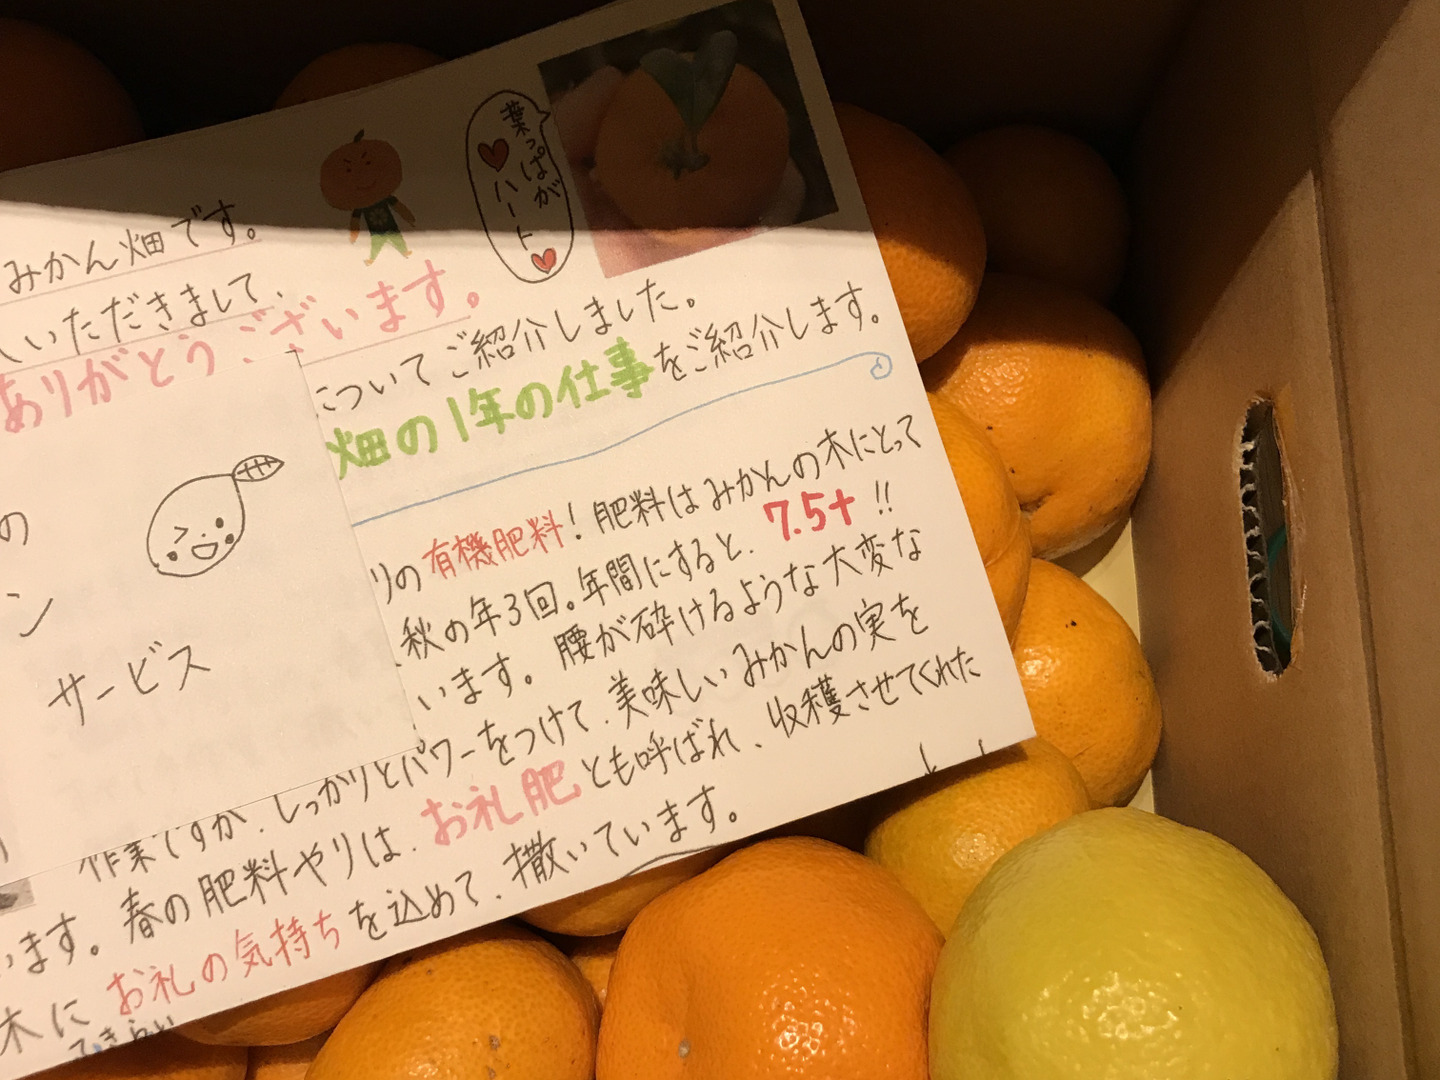 葉っぱが
ハート
みかん畑です。
いただきまして、
ありがとうございます。
についてご紹介しました。
畑の1年の仕事をご紹介します。
の
ン
サービス
りの有機肥料!肥料はみかんの木にとって
秋の年3回。年間にすると、7.5t!!
います。腰が砕けるような大変な
作業ですが、しっかりとパワーをつけて、美味しいみかんの実を
います。春の肥料やりは、お礼肥とも呼ばれ、収穫させてくれた
木にお礼の気持ちを込めて、撒いています。